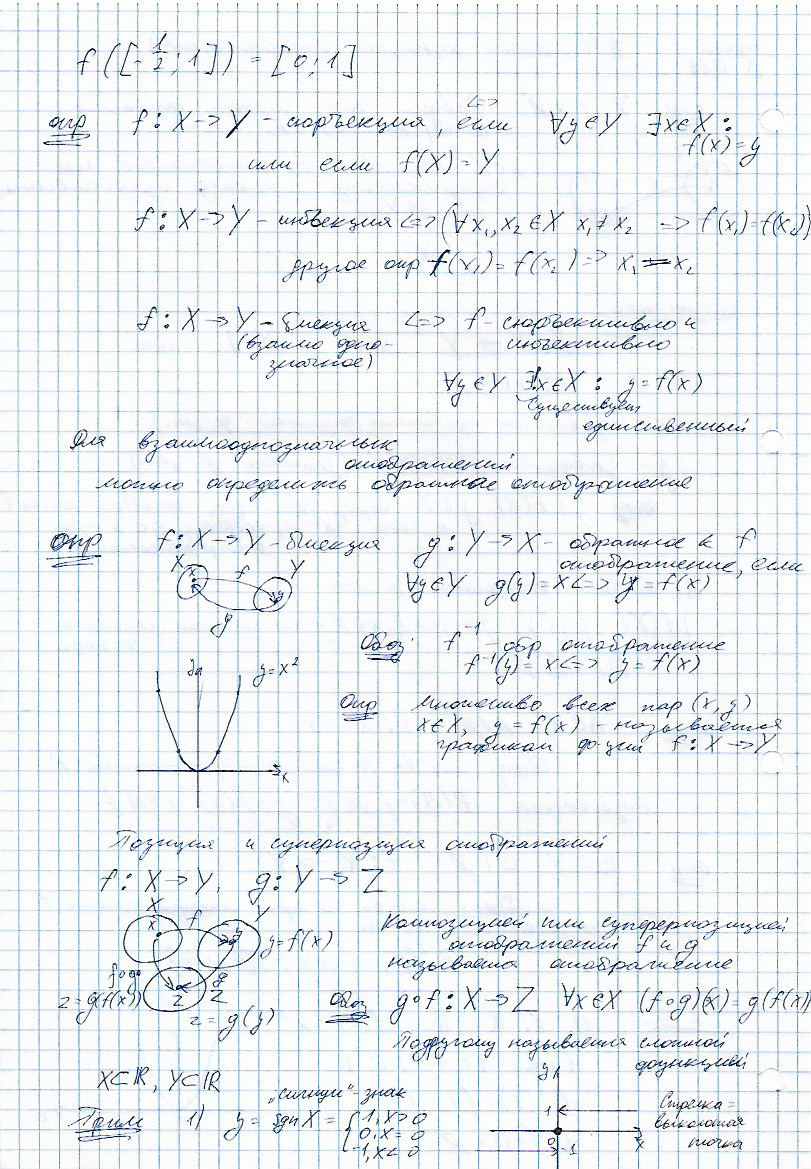 f([-1/2; 1]) = [0; 1]
опр f: X → Y - сюръекция, если <=> ∀y∈Y ∃x∈X :
f(x) = y
или если f(X) = Y
f: X → Y - инъекция <=> (∀x₁, x₂ ∈ X x₁ ≠ x₂ => f(x₁) = f(x₂))
другое опр f(x₁) = f(x₂) => x₁ = x₂
f: X → Y - биекция <=> f - сюръективно и
(взаимо одно-
значное)
инъективно
∀y∈Y ∃!x∈X : y = f(x)
существует
единственный
Для взаимооднозначных
отображений
можно определить обратное отображение
Опр f: X → Y - биекция g: Y → X - обратное к f
отображение, если
∀y∈Y g(y) = x <=> y = f(x)
X f Y
x y
g
Обоз f⁻¹ - обр отображение
f⁻¹(y) = x <=> y = f(x)
y = x²
x
Опр множество всех пар (x, y)
x∈X, y = f(x) - называется
графикам ф-ции f: X → Y
Позиция и суперпозиция отображений
f: X → Y, g: Y → Z
X
x f Y
y y = f(x)
f∘g g
z = g(f(x)) z Z
z = g(y)
Композицией или суперпозицией
отображений f и g
называется отображение
Обоз g∘f: X → Z ∀x∈X (f∘g)(x) = g(f(x))
Подругому называется сложной
функцией
X⊂ℝ, Y⊂ℝ
„сигнум" - знак
Прим 1) y = sgn X = { 1, x > 0
0, x = 0
-1, x < 0
y
1
0
x
-1
Стрелка =
выколотая
точка